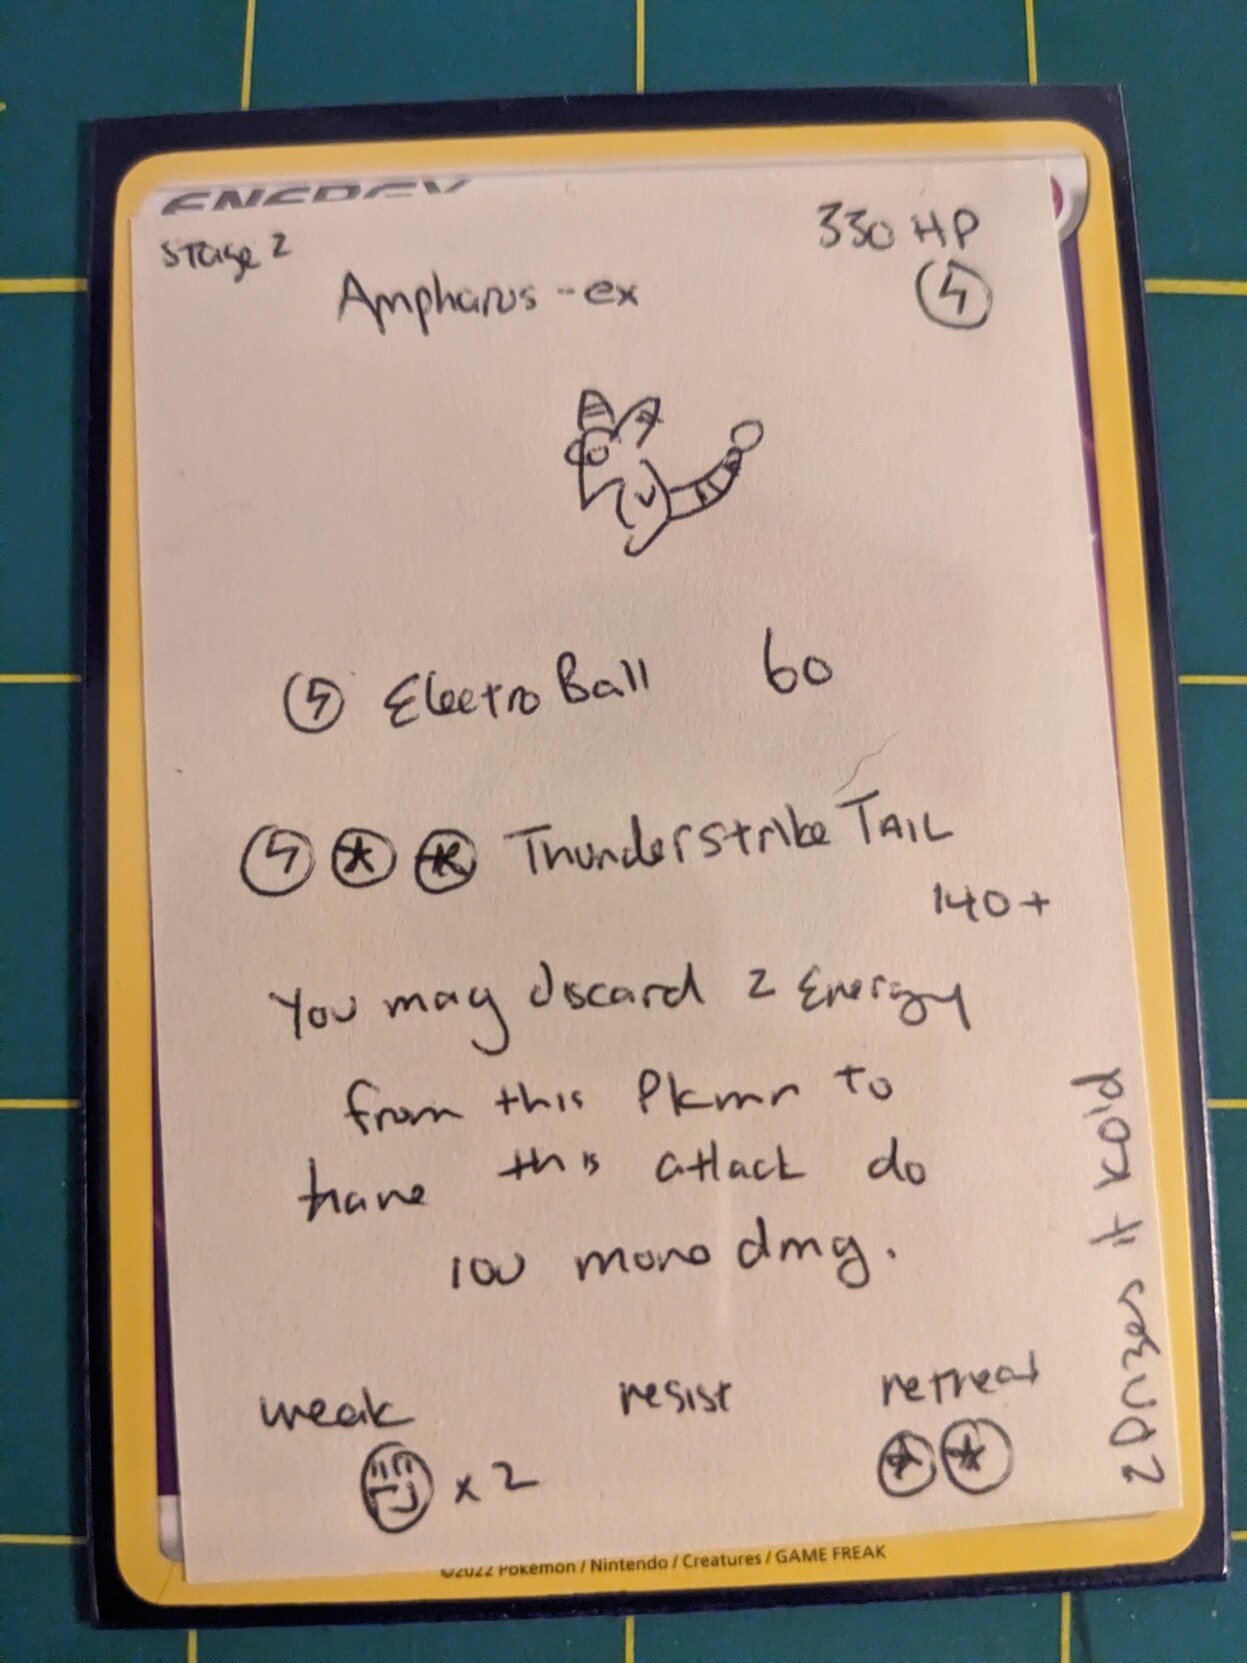 ENERGY
Stage 2
330 HP
Ampharos-ex
Electro Ball 60
Thunderstrike TAIL
140+
You may discard 2 Energy
from this Pkmn to
have this attack do
100 more dmg.
weak
resist
retreat
x 2
2 Prizes if KO'd
©2022 Pokémon / Nintendo / Creatures / GAME FREAK